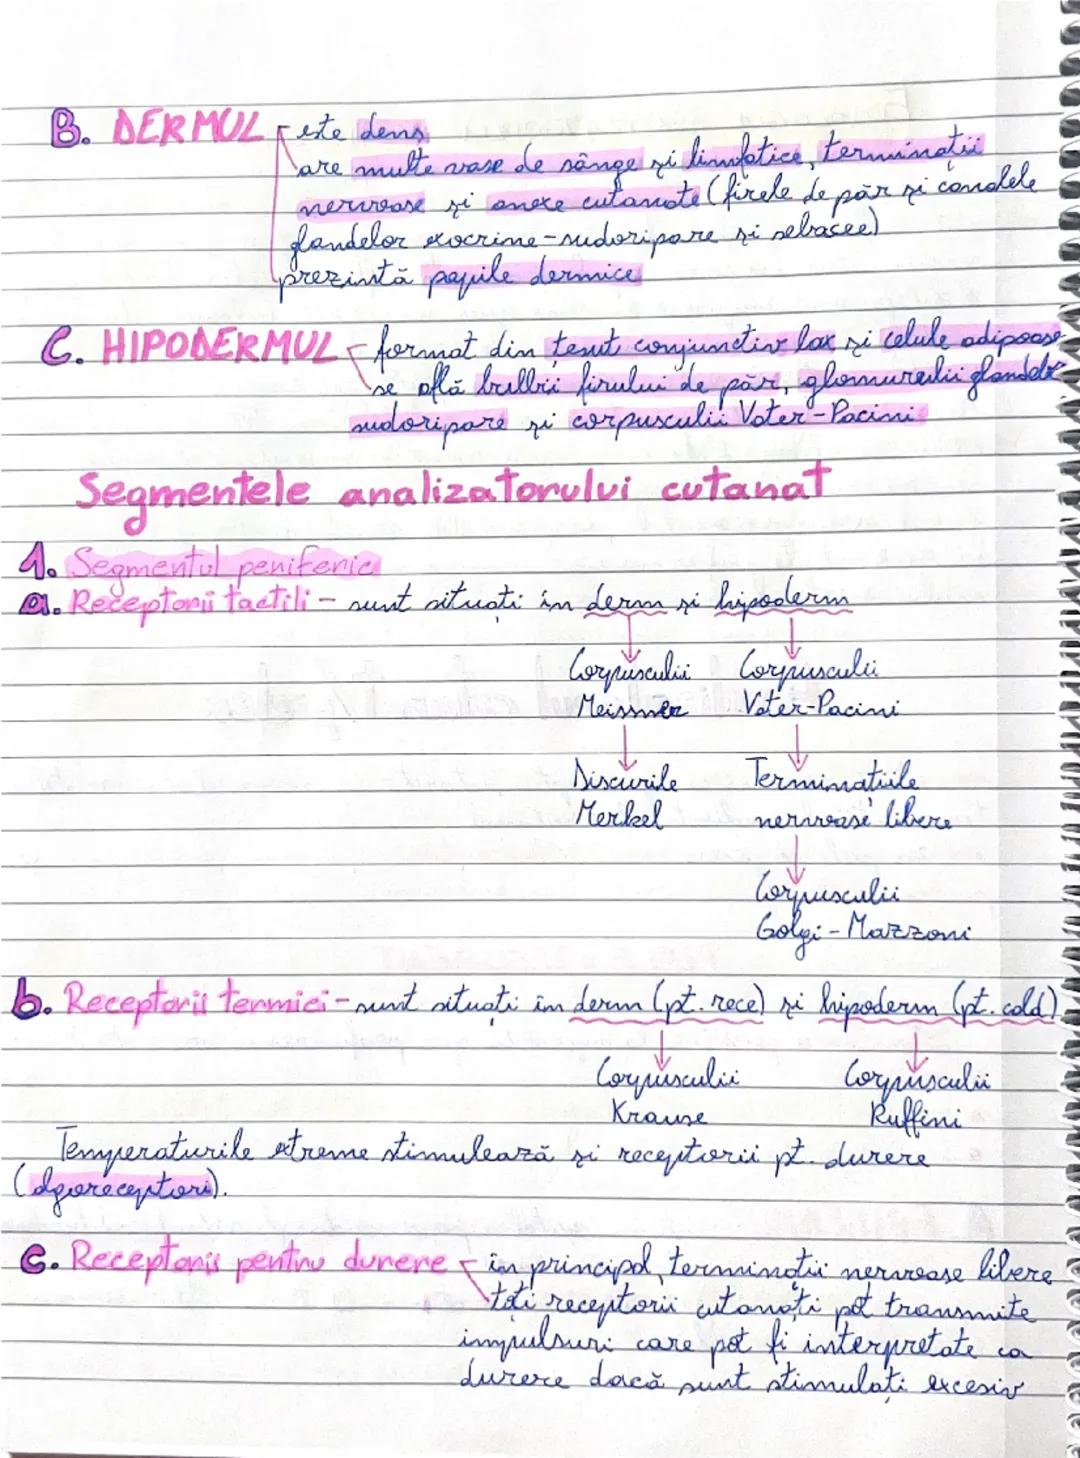 B. DERMUL este dens
are multe vase de sânge și limfatice, terminații
nervoase și anexe cutanate (firele de păr și canalele
glandelor exocrine-sudoripare și sebacee)
prezintă papile dermice
C. HIPODERMUL format din țesut conjunctiv lax și celule adipoase
se află bulbii firului de păr, glomurulii glandelor
sudoripare și corpusculii Vater-Pacini
Segmentele analizatorului cutanat
1. Segmentul periferic
a. Receptorii tactili - sunt situați în derm și hipoderm
Corpusculii Corpusculii
Meissner Vater-Pacini
Discurile Terminațiile
Merkel nervoase libere
Corpusculii
Golgi-Mazzoni
b. Receptorii termici - sunt situați în derm (pt. rece) și hipoderm (pt. cald)
Corpusculii Corpusculii
Krause Ruffini
Temperaturile extreme stimulează și receptorii pt. durere
(algoreceptori).
c. Receptorii pentru durere în principal, terminații nervoase libere
toți receptorii cutanați pot transmite
impulsuri care pot fi interpretate ca
durere dacă sunt stimulați excesiv